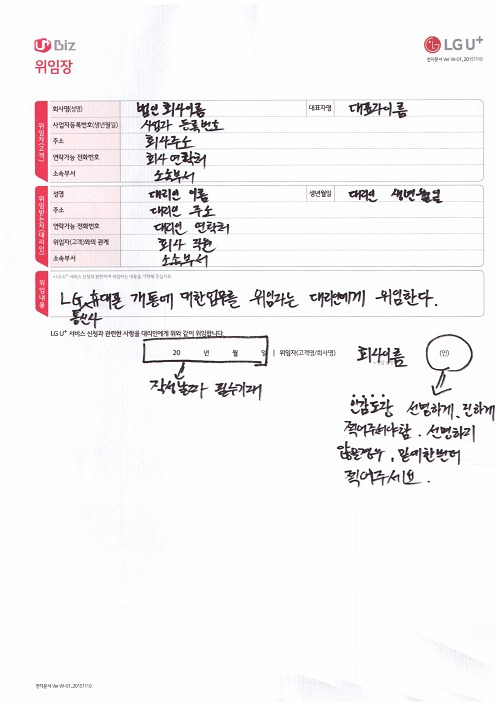 U+ Biz
LG U+
위임장
전자문서 Ver Wi-01_20151110
위임자(고객)
회사명(성명) 법인 회사이름 대표자명 대표자이름
사업자등록번호(생년월일) 사업자 등록번호
주소 회사주소
연락가능 전화번호 회사 연락처
소속부서 소속부서
위임받는자(대리인)
성명 대리인 이름 생년월일 대리인 생년월일
주소 대리인 주소
연락가능 전화번호 대리인 연락처
위임자(고객)와의 관계 회사 직원
소속부서 소속부서
위임내용
* LG U+ 서비스 신청과 관련하여 위임하는 내용을 기재해 주십시오.
LG 휴대폰 개통에 대한업무를 위임하는 대리인에게 위임한다.
통신사
LG U+ 서비스 신청과 관련한 사항을 대리인에게 위와 같이 위임합니다.
20 년 월 일 위임자(고객명/회사명) 회사이름 (인)
작성날짜 필수기재
인감도장 선명하게, 진하게
찍어주셔야함. 선명하지
않을경우, 밑에한번더
찍어주세요.
전자문서 Ver Wi-01_20151110